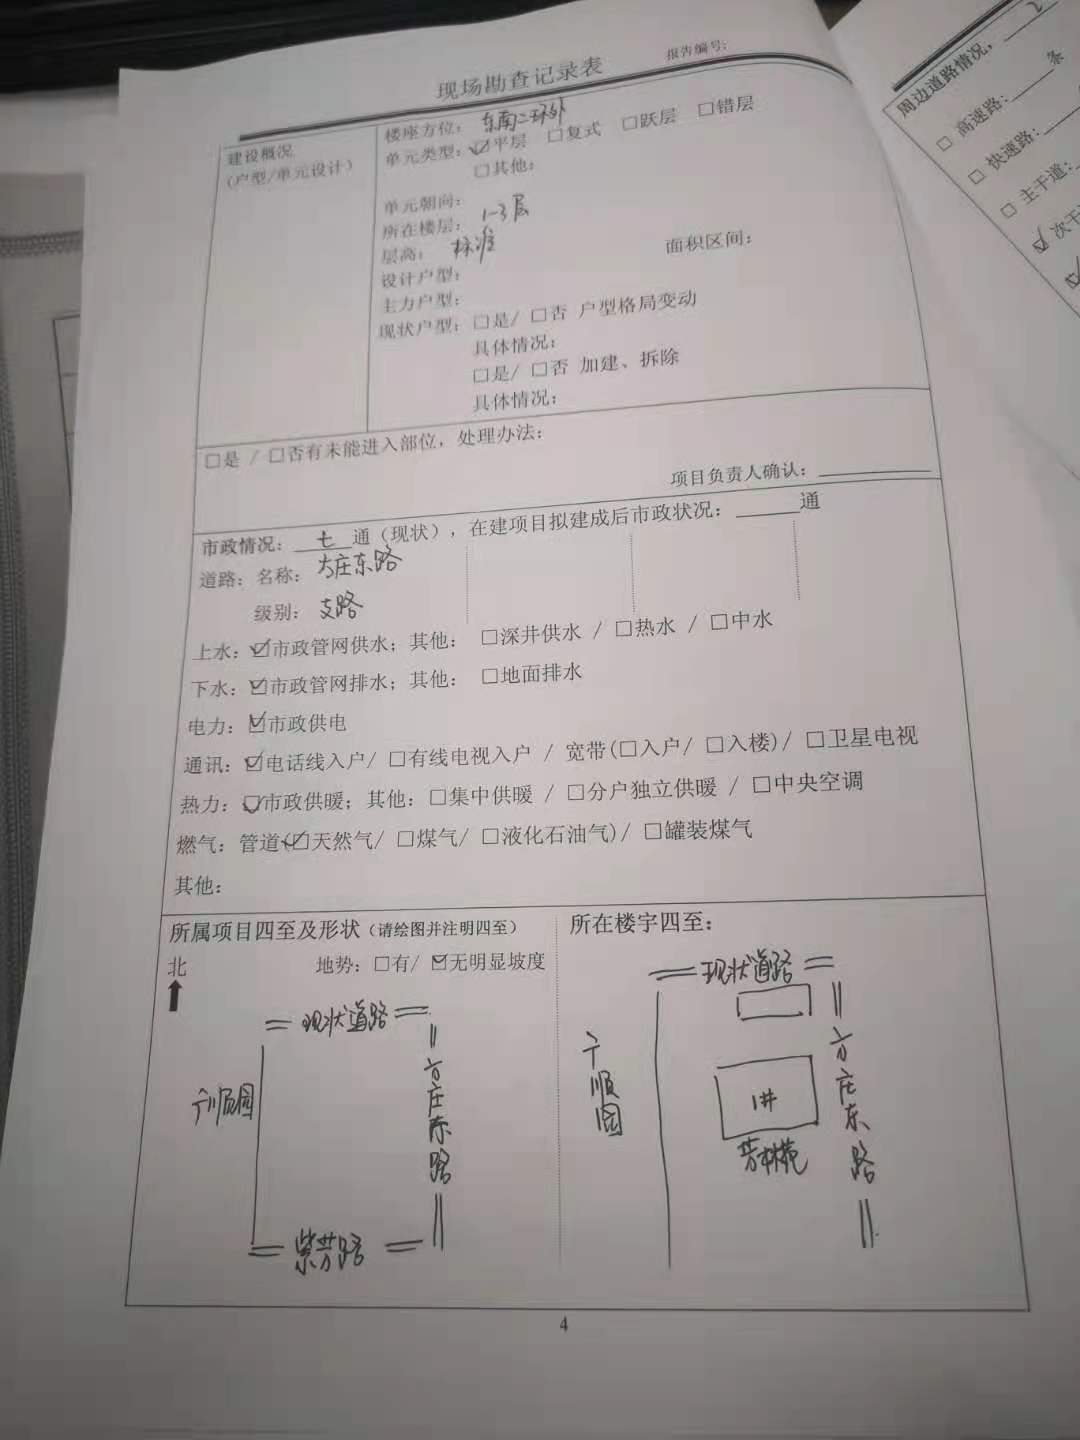 现场勘查记录表
报告编号:
建设概况
(户型/单元设计)
楼座方位: 东南二环外
单元类型: ☑平层 □复式 □跃层 □错层
□其他:
单元朝向:
所在楼层: 1-3层
层高: 标准
设计户型: 面积区间:
主力户型:
现状户型: □是/ □否 户型格局变动
具体情况:
□是/ □否 加建、拆除
具体情况:
□是 / □否有未能进入部位，处理办法:
项目负责人确认:
市政情况: 七 通（现状），在建项目拟建成后市政状况: 通
道路: 名称: 方庄东路
级别: 支路
上水: ☑市政管网供水; 其他: □深井供水 / □热水 / □中水
下水: ☑市政管网排水; 其他: □地面排水
电力: ☑市政供电
通讯: ☑电话线入户/ □有线电视入户 / 宽带(□入户/ □入楼)/ □卫星电视
热力: ☑市政供暖; 其他: □集中供暖 / □分户独立供暖 / □中央空调
燃气: 管道(☑天然气/ □煤气/ □液化石油气)/ □罐装煤气
其他:
所属项目四至及形状（请绘图并注明四至）
北
地势: □有/ ☑无明显坡度
现状道路
方庄东路
紫芳路
所在楼宇四至:
现状道路
方庄东路
1#
4
周边道路情况， 2
□ 高速路: 条
□ 快速路:
□ 主干道:
☑ 次干